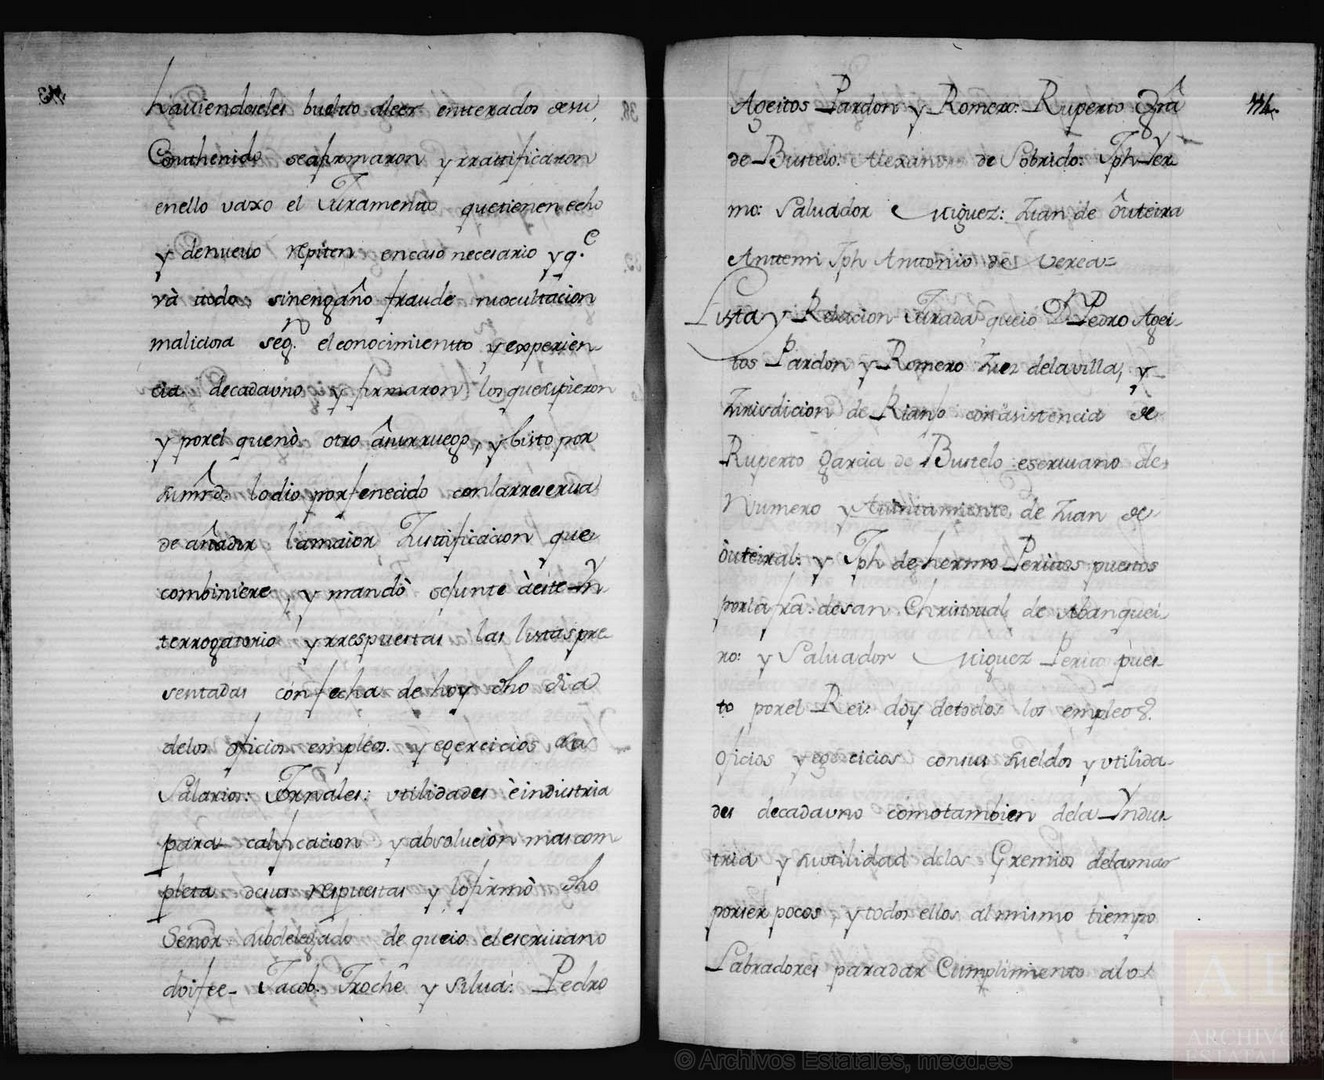 haviendoseles buelto aleer enterados desu
Conthenido seafirmaron y rratificaron
enello vaxo el Juramento quetienen echo
y denuevo repiten encaso necesario y q.e
và todo, sinengaño fraude niocultacion
maliciosa seg.n elconocimientto y experien-
cia decadauno y firmaron, los quesupieron
y porel quenò otro âsurruego, y bisto por
sumrd. lodio porfenecido conlarreserua
de añadir lamaior Justtificacion que
combiniere, y mandò sejunte àeste Yn
terrogatorio y rrespuestas las listas pre
sentadas confecha de hoy dho dia
delos oficios empleos. y egercicios
Salarios: Jornales: vtilidades èindustria
para calificacion y absolucion mas com
pleta desus respuestas y lofirmò dho
Señor subdelegado de queio elescriuano
doifee- Jacob. Troche y Silua: Pedro
114.
Ageitos Pardon y Romero: Ruperto Gra
de Bustelo: Alexandro de Sobrido: Jph Yer
mo: Saluador Miguez: Juan de ôuteira
Anttemi Jph Anttonio de Verea=
Lista y Relacion Jurada queio Dn Pedro Agei-
tos Pardon y Romero Juez delavilla, y
Jurisdicion de Rianjo conasistencia de
Ruperto garcia de Bustelo escriuano de
Numero y Aiuntamiento, de Juan de
òuteiral: y Jph de hermo Peritos puestos
porla fra: desan Christoual, de Abanquei-
ro: y Saluador Miguez Perito pues-
to porel Rei: doy detodos los empleos.
Oficios y egercicios consus sueldos y vtilida-
des decadauno comotambien dela Yndus
tria y suutilidad delos Gremios delamar
porser pocos, y todos ellos almismo tiempo
Labradores paradar Cumplimiento alos
© Archivos Estatales, mecd.es
AE
ARCHIVOS
ESTATALES